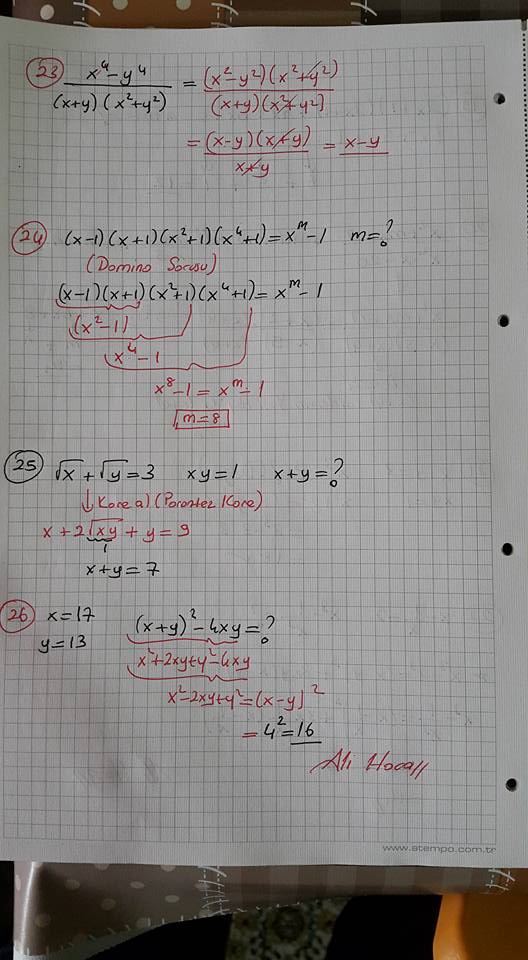 23 x⁴-y⁴/(x+y)(x²+y²) = (x²-y²)(x²+y²)/(x+y)(x²+y²)
= (x-y)(x+y)/x+y = x-y
24 (x-1)(x+1)(x²+1)(x⁴+1)=xᵐ-1 m=?
(Domino Sorusu)
(x-1)(x+1)(x²+1)(x⁴+1)=xᵐ-1
(x²-1)
x⁴-1
x⁸-1=xᵐ-1
m=8
25 √x+√y=3 xy=1 x+y=?
↓Kare al (Parantez Kare)
x+2√xy+y=9
1
x+y=7
26 x=17 (x+y)²-4xy=?
y=13
x²+2xy+y²-4xy
x²-2xy+y²=(x-y)²
=4²=16
Ali Hoca
www.stempo.com.tr